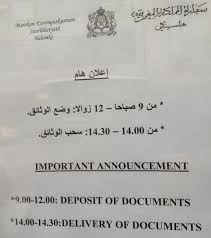 Marokon Kuningaskunnan
Suurlähetystö
Helsinki
سفارة المملكة المغربية
هلسنكي
إعلان هام
* من 9 صباحا – 12 زوالا: وضع الوثائق.
* من 14.00 – 14.30: سحب الوثائق.
IMPORTANT ANNOUNCEMENT
*9.00-12.00: DEPOSIT OF DOCUMENTS
*14.00-14.30: DELIVERY OF DOCUMENTS